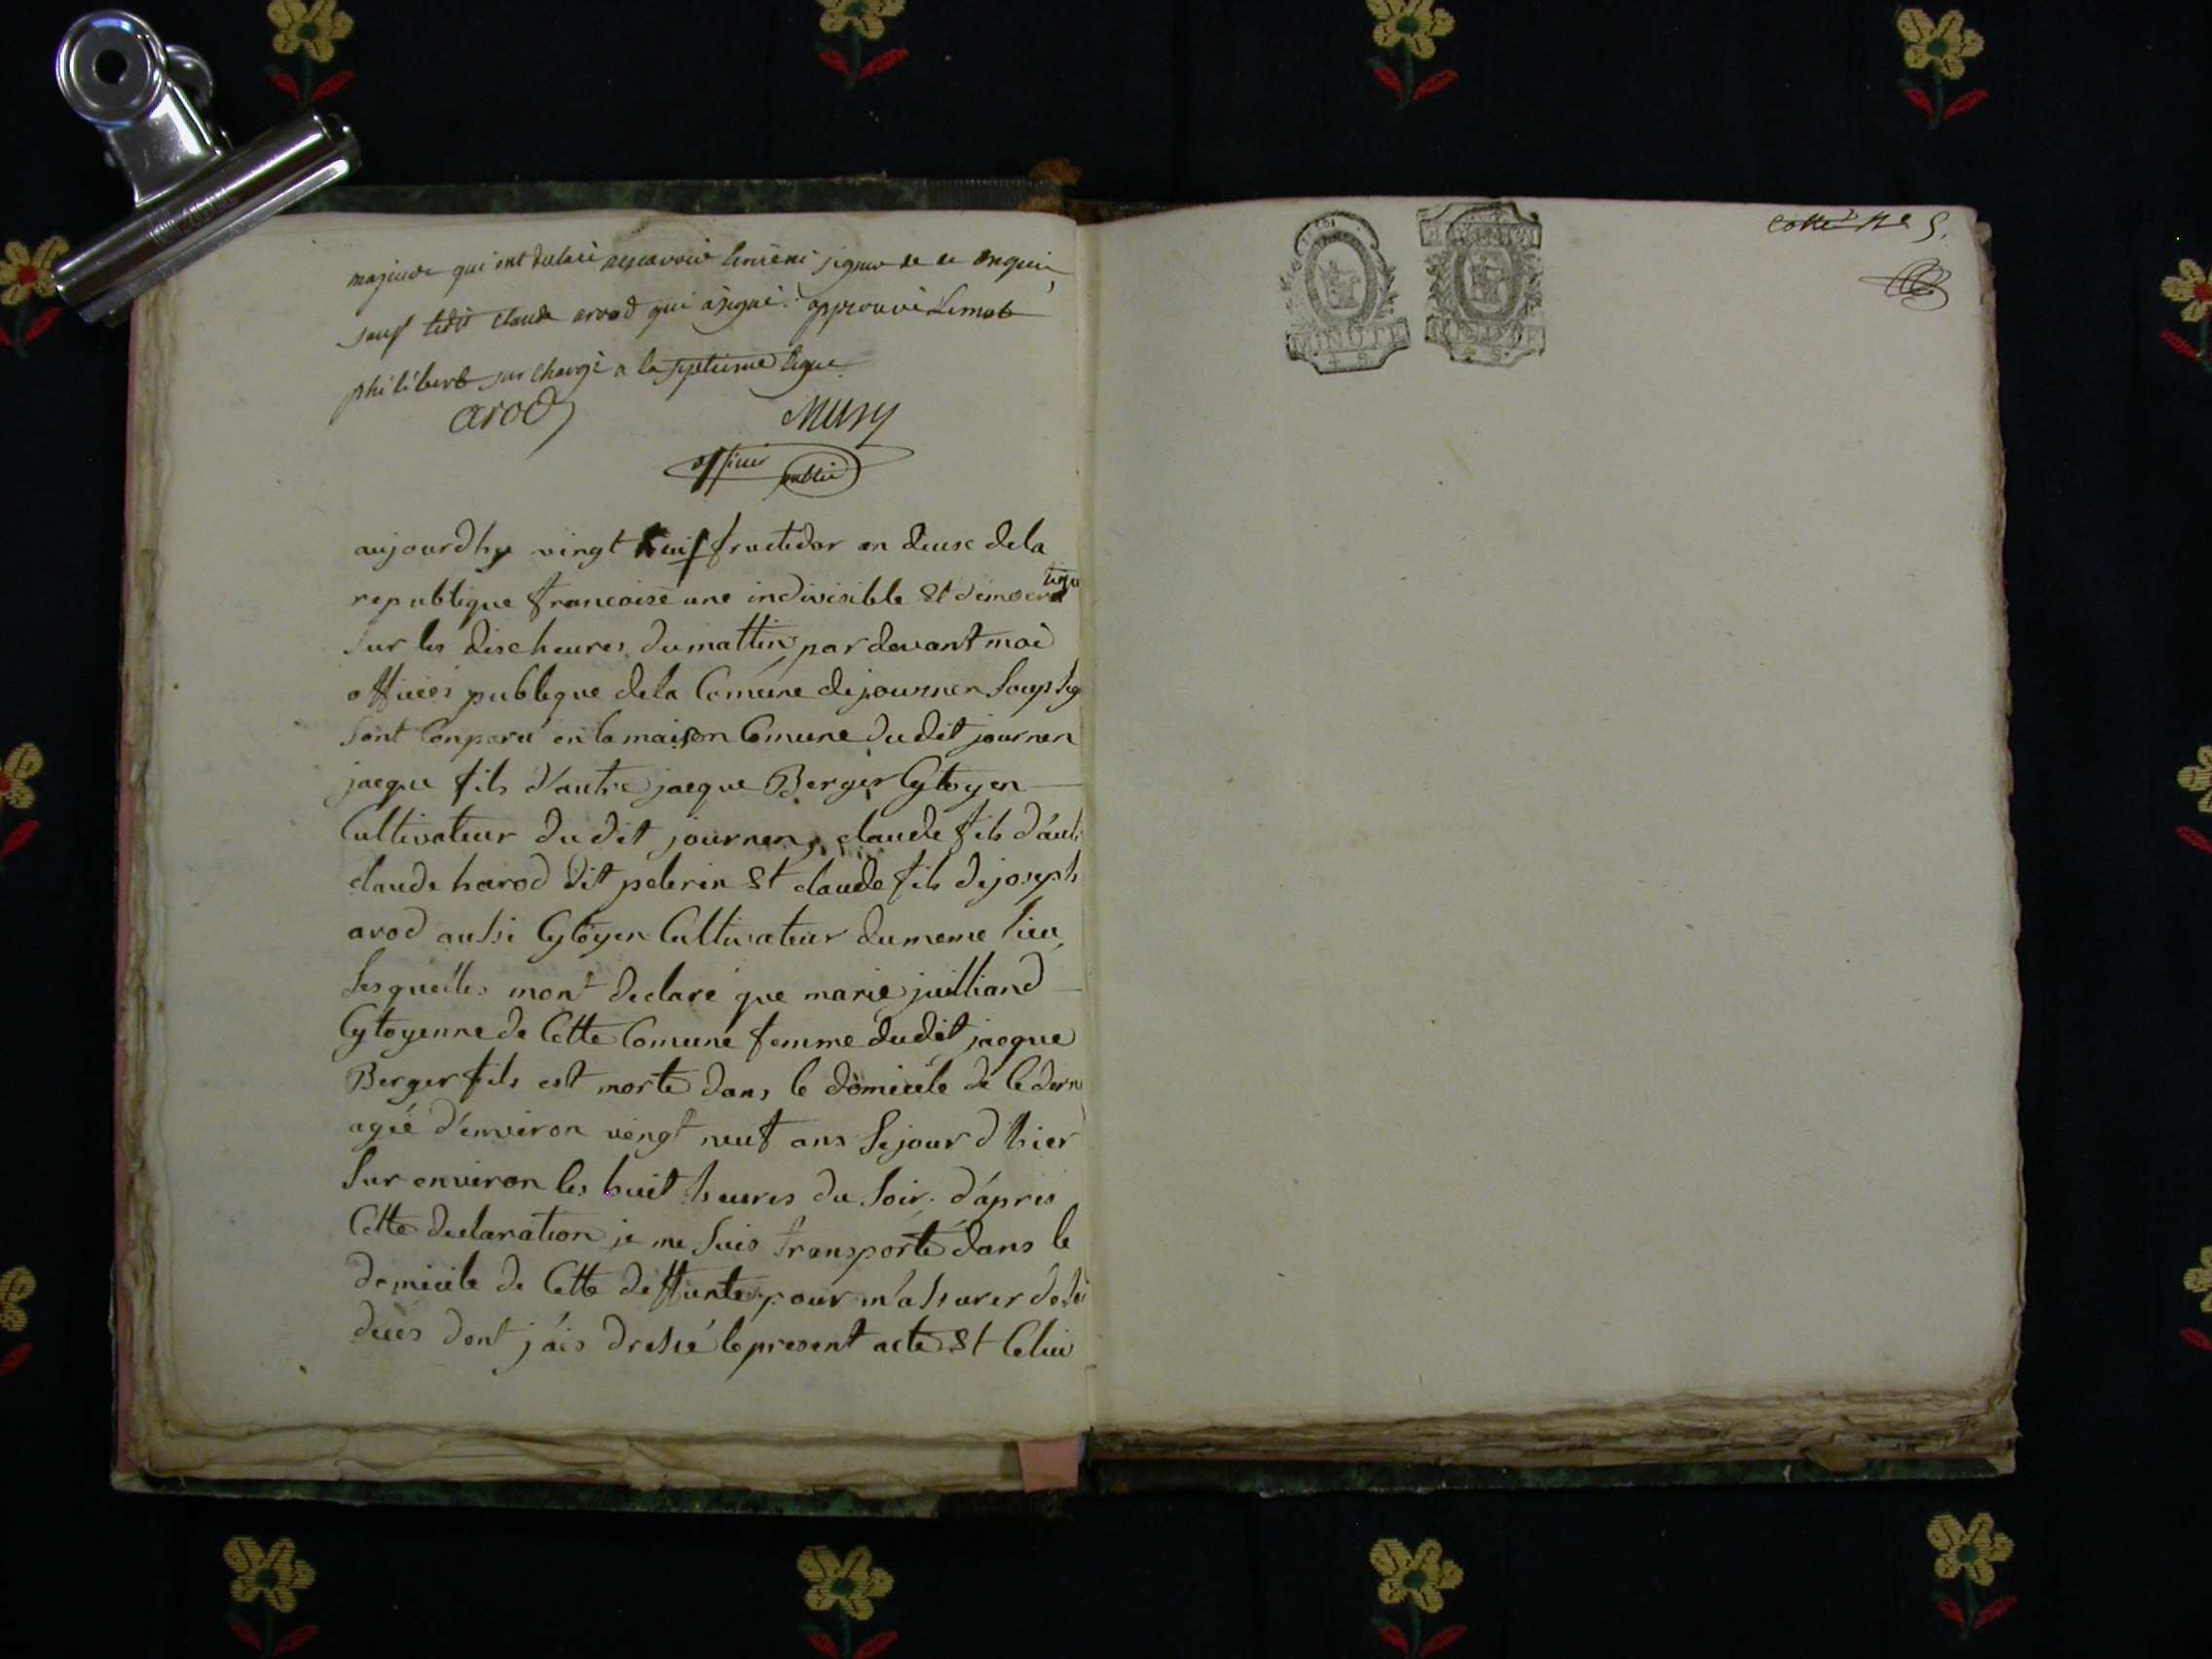 majeurs qui ont declaré nesçavoir lire ni signer de ce enquis,
sauf ledit claude arod qui a signé: approuvé Lemot
philibert surchargé a la septieme ligne
arod Musy
officier public
aujourdhy vingt huis fructidor an deuse dela
republique francoise une indivisible et democratique
sur les dise heures du mattin par devant moi
officies publique dela Comune de journen soupsig
sont Conparu en la maison Comune du dit journen
jacque fils d'autre jacque Berger Cytoyen
Cultivateur du dit journen, claude fils d'autr
claude harod dit pelerin et claude fils de joseph
arod aussi Cytoyen Cultivateur dumeme lieu
lesquelles mont declaré que marie juilliand
Cytoyenne de Cette Comune femme dudit jacque
Berger fils est morte dans le domicile de Ce dern
agée d'environ vingt neuf ans le jour d hier
sur environ les huit heures du soir. d'apres
Cette declaration je me suis transporté dans le
domicile de Cette deffunte pour m'assurer de
ducès dont j'ais dressé le present acte et Celui
Cotté Ne 5.
MINUTE
MINUTE